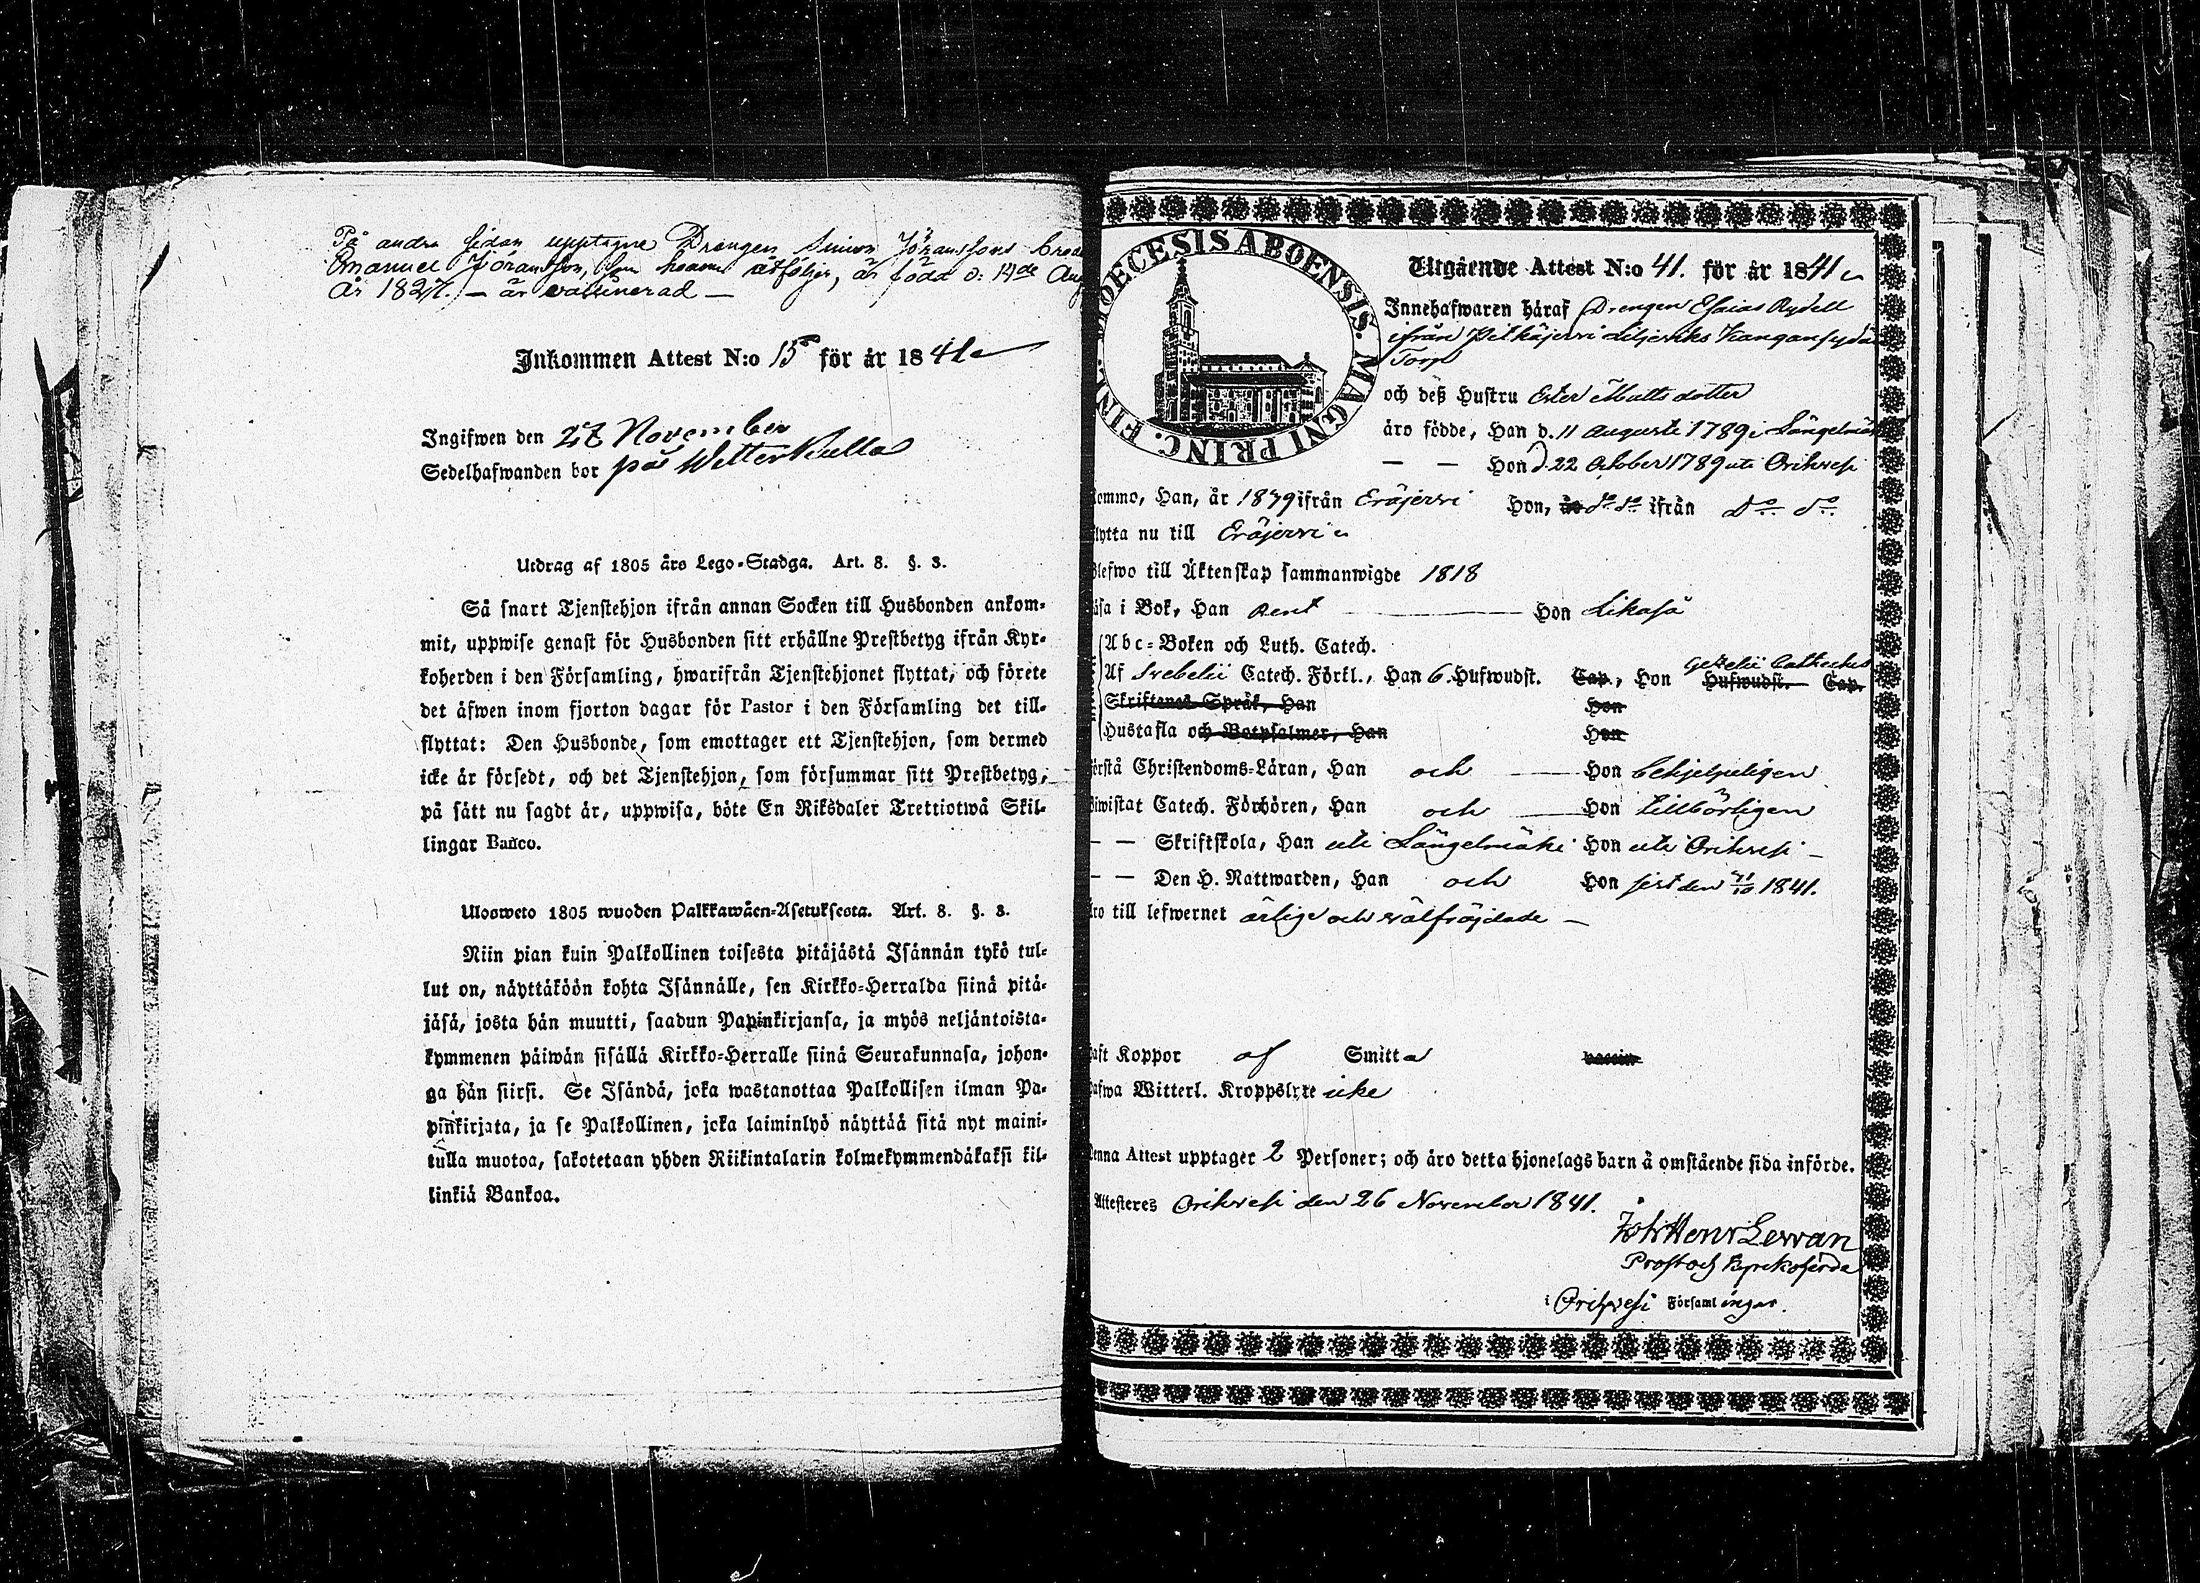 På andra sidan upptagne Drängen Simon Jöranssons
Emanuel Jöransson, som honom åtföljer, är född d: 14de Aug
År 1827. — är vaccinerad —
Inkommen Attest N:o 15 för år 1841
Ingifwen den 27 November
Sedelhafwanden bor på Wetterkulla
Utdrag af 1805 års Lego-Stadga. Art. 8. §. 3.
Så snart Tjenstehjon ifrån annan Socken till Husbonden ankom-
mit, uppwise genast för Husbonden sitt erhållne Prestbetyg ifrån Kyr-
koherden i den Församling, hwarifrån Tjenstehjonet flyttat, och förete
det äfwen inom fjorton dagar för Pastor i den Församling det till-
flyttat: Den Husbonde, som emottager ett Tjenstehjon, som dermed
icke är försedt, och det Tjenstehjon, som försummar sitt Prestbetyg,
på sätt nu sagdt är, uppwisa, böte En Riksdaler Trettiotwå Skil-
lingar Banco.
Ulosweto 1805 wuoden Palkkawäen-Asetuksesta. Art. 8. §. 3.
Niin pian kuin Palkollinen toisesta pitäjästä Isännän tykö tul-
lut on, näyttäköön kohta Isännälle, sen Kirkko-Herralda siinä pitä-
jäsä, josta hän muutti, saadun Papinkirjansa, ja myös neljäntoista-
kymmenen päiwän sisällä Kirkko-Herralle siinä Seurakunnasa, johon-
ga hän siirsi. Se Isändä, joka wastanottaa Palkollisen ilman Pa-
pinkirjata, ja se Palkollinen, joka laiminlyö näyttää sitä nyt maini-
tulla muotoa, sakotetaan yhden Riikintalarin kolmekymmendäkaksi kil-
linkiä Bankoa.
DIOECESIS ABOENSIS. MAGNI PRINC. FINL.
Utgående Attest N:o 41. för år 1841
Innehafwaren häraf Drengen Esaias Rydell
ifrån Pitkäjerwi Kangansyda
Torp
och deß Hustru Ester Mattsdotter
äro födde, Han d. 11 Augusti 1789 i Längelmäki
— — Hon d. 22 October 1789 uti Orihvesi
kommo, Han, år 1839 ifrån Eräjerwi Hon, år do do ifrån Do do
flytta nu till Eräjerwi
Blefwo till Äktenskap sammanwigde 1818
Läsa i Bok, Han rent — Hon Likaså
Abc-Boken och Luth. Catech.
Af Svebelii Catech. Förkl., Han 6 Hufwudst. Cap., Hon Hufwudst. Cap. Gezelii Catheches
Skriftenes Språk, Han Hon
Hustafla och Botpsalmer, Han Hon
förstå Christendoms-Läran, Han och — Hon behjelpeligen
Biwistat Catech. Förhören, Han och — Hon tillbörligen
— — Skriftskola, Han uti Längelmäki Hon uti Orihvesi —
— — Den H. Nattwarden, Han och Hon sist den 31/10 1841.
äro till lefwernet ärlige och välfräjdade —
haft Koppor af Smitta vaccin
hafwa Witterl. Kroppslyte icke
Denna Attest upptager 2 Personer; och äro detta hjonelags barn å omstående sida införde.
Attesteres Orihvesi den 26 November 1841.
Joh Henr Lewan
Prost och Kyrkoherde
i Orihvesi Församlingar.